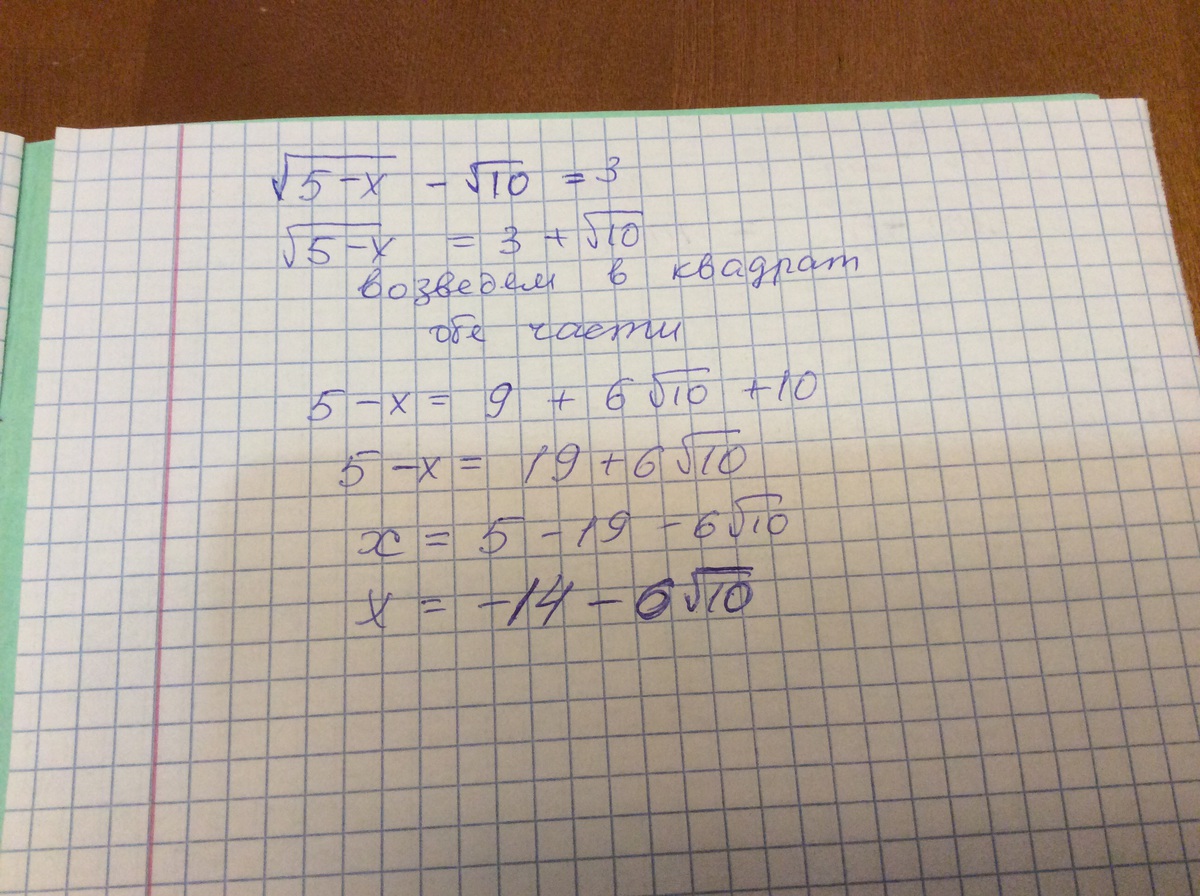 √5-x - √10 = 3
√5-x = 3 + √10
возведем в квадрат
обе части
5-x = 9 + 6√10 +10
5-x = 19 + 6√10
x = 5 - 19 - 6√10
x = -14 - 6√10